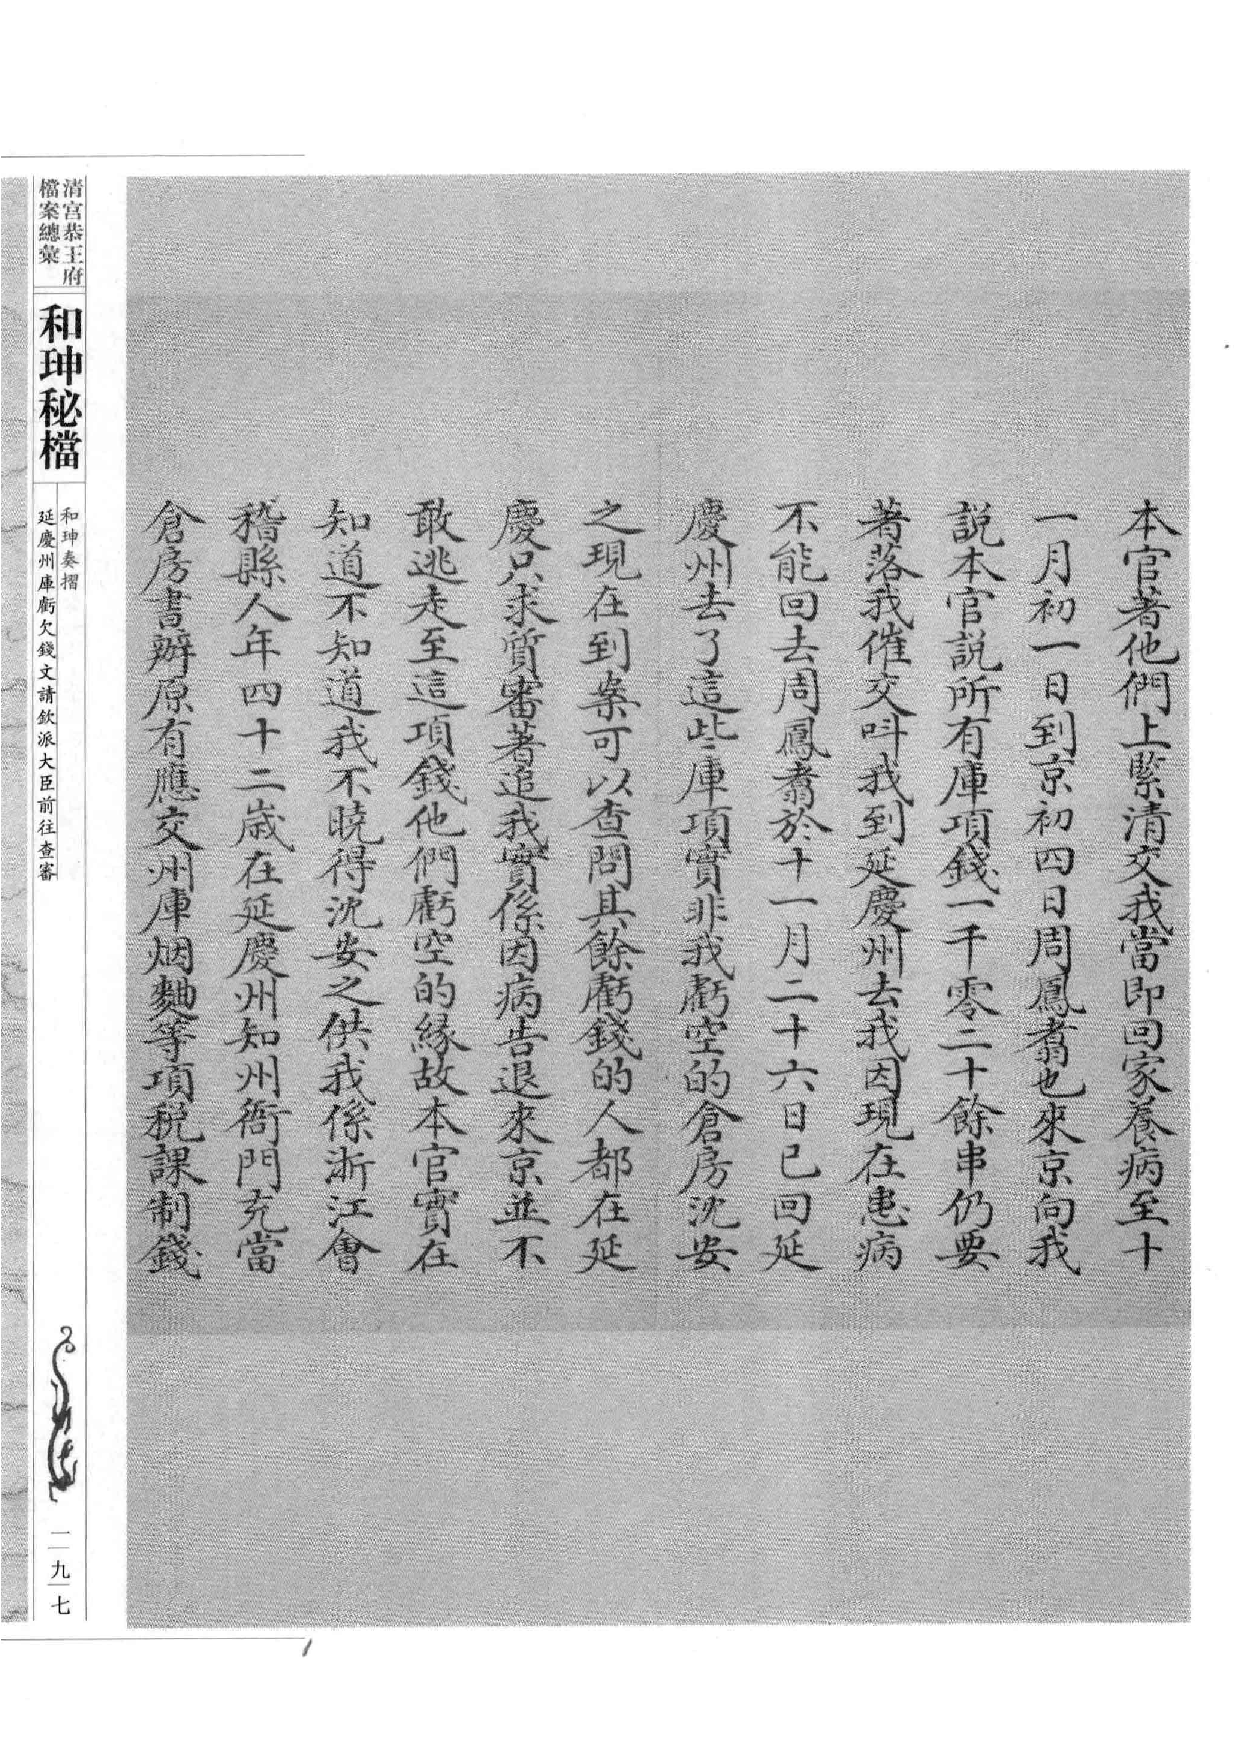 本官著他們上緊清交我當即回家養病至十
一月初一日到京初四日周鳳翥也來京向我
說本官說所有庫項錢一千零二十餘串仍要
著落我催交叫我到延慶州去我因現在患病
不能回去周鳳翥於十一月二十六日已回延
慶州去了這些庫項實非我虧空的倉房沈安
之現在到案可以查問其餘虧錢的人都在延
慶只求質審著追我實係因病告退來京並不
敢逃走至這項錢他們虧空的緣故本官實在
知道不知道我不曉得沈安之供我係浙江會
稽縣人年四十二歲在延慶州知州衙門充當
倉房書辦原有應交州庫烟麯等項稅課制錢
清宮恭王府
檔案總彙
和珅秘檔
和珅奏摺
延慶州庫虧欠錢文請欽派大臣前往查審
一九七